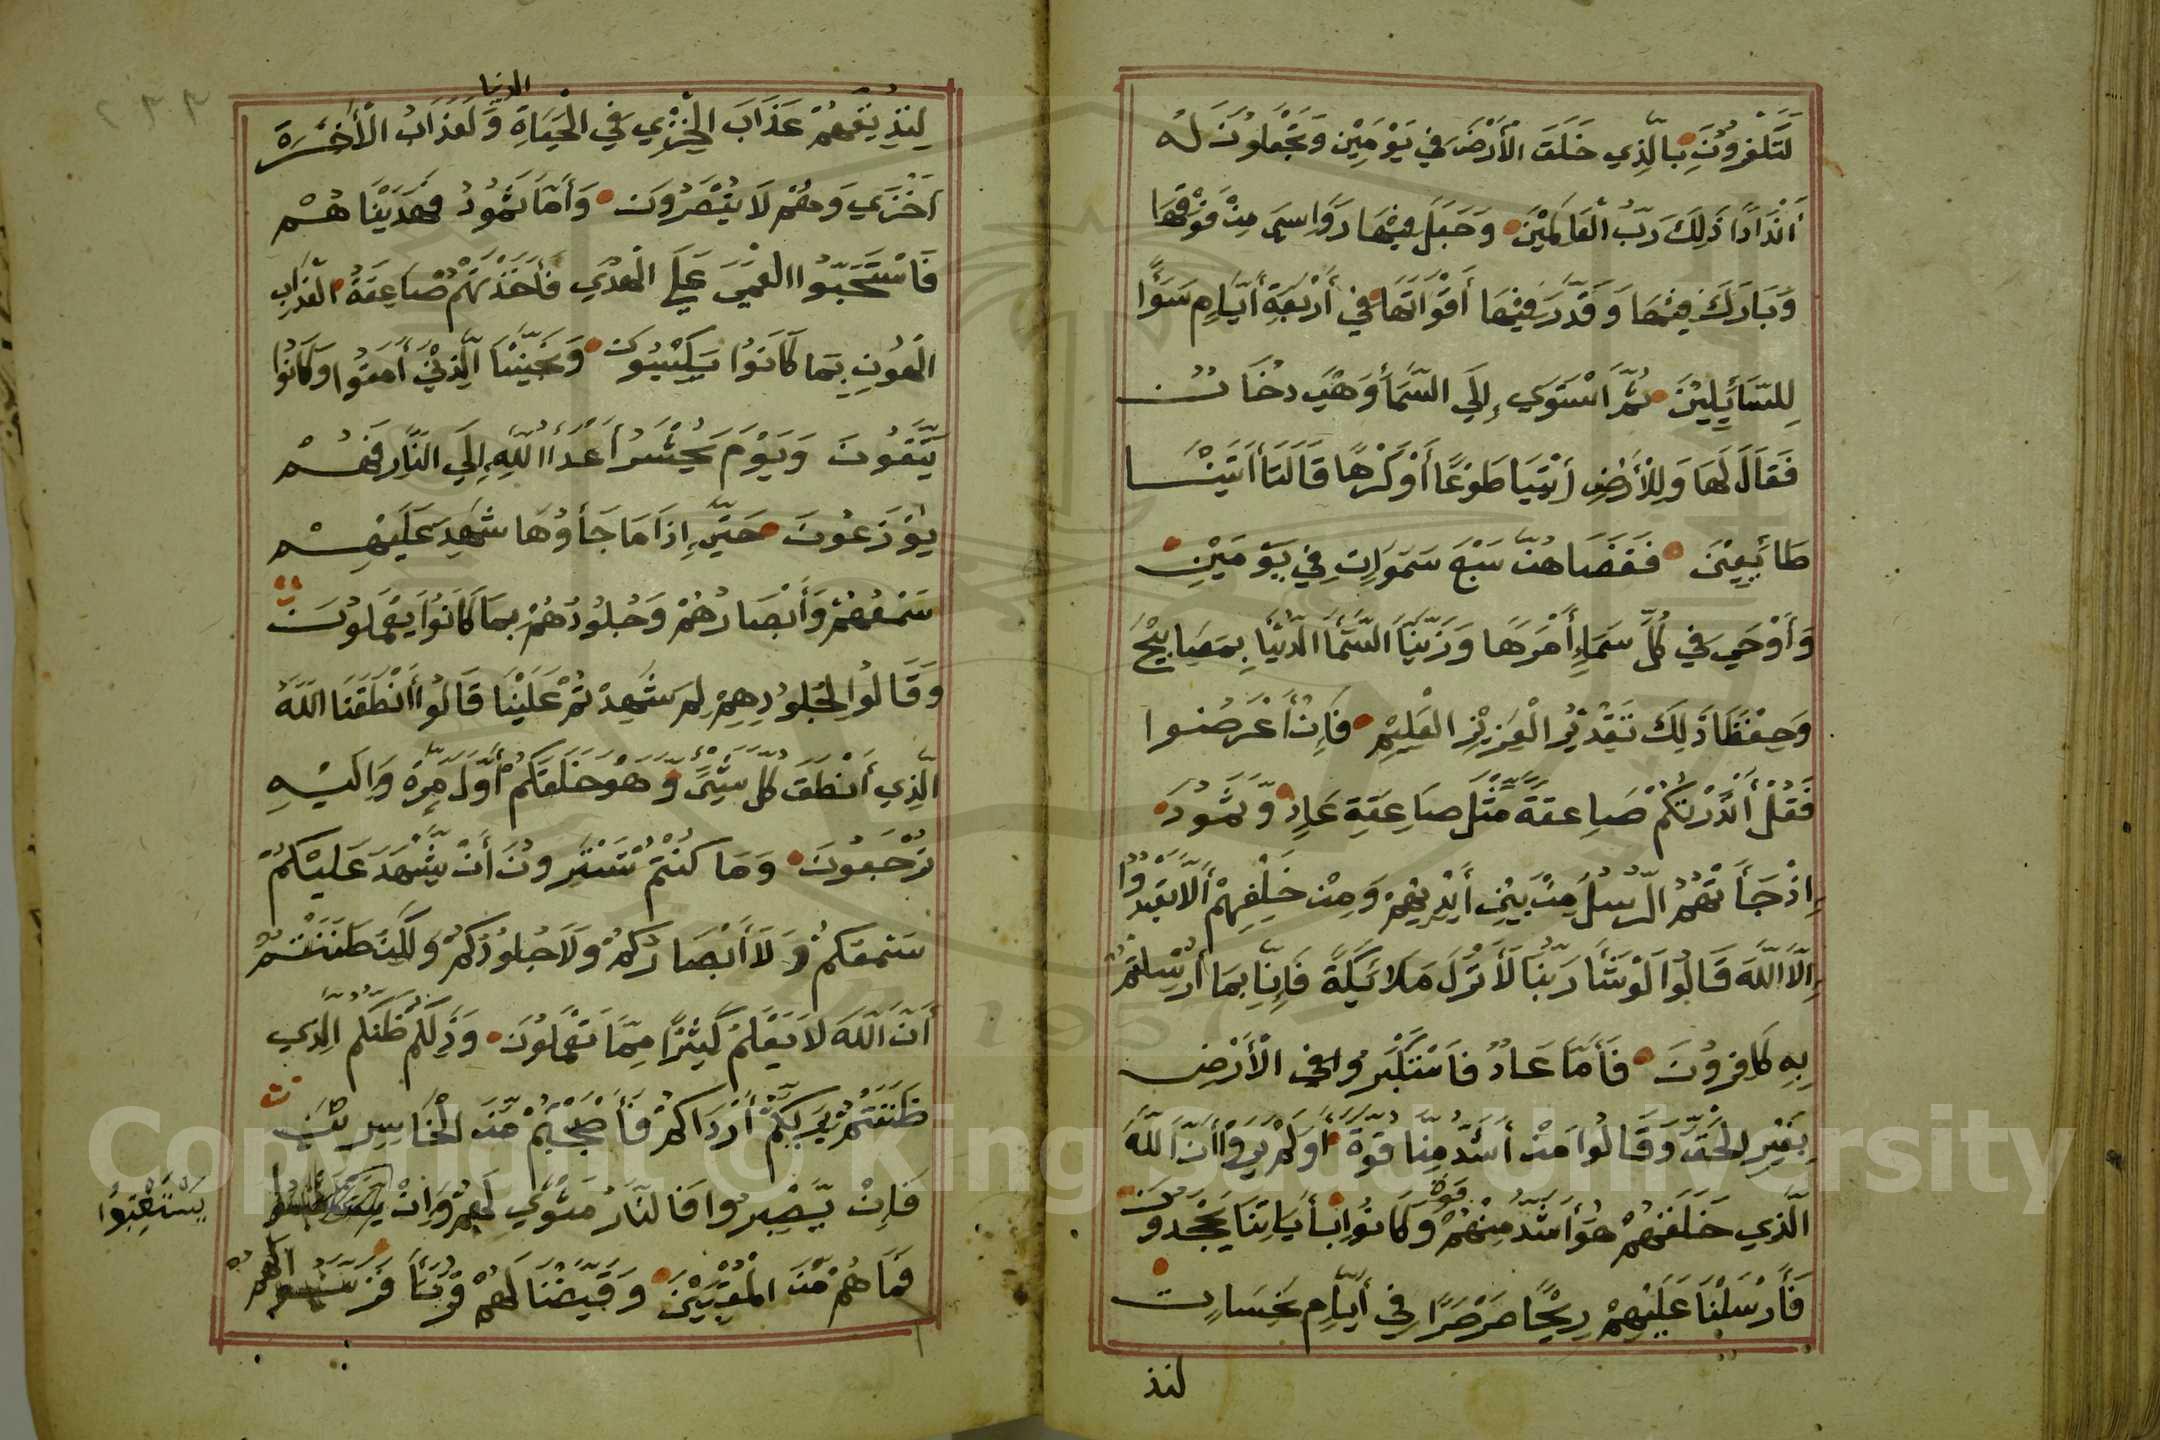 لَتَكْفُرُونَ بِالَّذِي خَلَقَ الْأَرْضَ فِي يَوْمَيْنِ وَتَجْعَلُونَ لَهُ
أَنْدَادًا ذَلِكَ رَبُّ الْعَالَمِيْنَ وَجَعَلَ فِيْهَا رَوَاسِيَ مِنْ فَوْقِهَا
وَبَارَكَ فِيْهَا وَقَدَّرَ فِيْهَا أَقْوَاتَهَا فِي أَرْبَعَةِ أَيَّامٍ سَوَأً
لِلسَّائِلِيْنَ ثُمَّ اسْتَوَي إِلَي السَّمَأِ وَهْيَ دُخَانٌ
فَقَالَ لَهَا وَلِلْأَرْضِ ائْتِيَا طَوْعًا أَوْ كَرْهًا قَالَتَا أَتَيْنَا
طَائِعِيْنَ فَقَضَاهُنَّ سَبْعَ سَمَوَاتٍ فِي يَوْمَيْنِ
وَأَوْحَي فِي كُلِّ سَمَاءٍ أَمْرَهَا وَزَيَّنَّا السَّمَأَ الدُّنْيَا بِمَصَابِيْحَ
وَحِفْظًا ذَلِكَ تَقْدِيْرُ الْعَزِيْزِ الْعَلِيْمِ فَإِنْ أَعْرَضُوا
فَقُلْ أَنْذَرْتُكُمْ صَاعِقَةً مِّثْلَ صَاعِقَةِ عَادٍ وَّثَمُودَ
إِذْ جَأَتْهُمُ الرُّسُلُ مِنْ بَيْنِ أَيْدِيْهِمْ وَمِنْ خَلْفِهِمْ أَلَّا تَعْبُدُوا
إِلَّا اللَّهَ قَالُوا لَوْ شَأَ رَبُّنَا لَأَنْزَلَ مَلَائِكَةً فَإِنَّا بِمَا أُرْسِلْتُمْ
بِهِ كَافِرُونَ فَأَمَّا عَادٌ فَاسْتَكْبَرُوا فِي الْأَرْضِ
بِغَيْرِ الْحَقِّ وَقَالُوا مَنْ أَشَدُّ مِنَّا قُوَّةً أَوَلَمْ يَرَوْا أَنَّ اللَّهَ
الَّذِي خَلَقَهُمْ هُوَ أَشَدُّ مِنْهُمْ قُوَّةً وَكَانُوا بِأَيَاتِنَا يَجْحَدُونَ
فَأَرْسَلْنَا عَلَيْهِمْ رِيْحًا صَرْصَرًا فِي أَيَّامٍ نَّحِسَاتٍ
لنذ
٢٣٣
لِنُذِيْقَهُمْ عَذَابَ الْخِزْيِ فِي الْحَيَاةِ الدنيا وَلَعَذَابُ الْأَخِرَةِ
أَخْزَي وَهُمْ لَا يُنْصَرُونَ وَأَمَّا ثَمُودُ فَهَدَيْنَاهُمْ
فَاسْتَحَبُّوا الْعَمَيَ عَلَي الْهُدَي فَأَخَذَتْهُمْ صَاعِقَةُ الْعَذَابِ
الْهُونِ بِمَا كَانُوا يَكْسِبُونَ وَنَجَّيْنَا الَّذِيْنَ أَمَنُوا وَكَانُوا
يَتَّقُونَ وَيَوْمَ يُحْشَرُ أَعْدَأُ اللَّهِ إِلَي النَّارِ فَهُمْ
يُوْزَعُونَ حَتَّي إِذَا مَا جَأُوهَا شَهِدَ عَلَيْهِمْ
سَمْعُهُمْ وَأَبْصَارُهُمْ وَجُلُودُهُمْ بِمَا كَانُوا يَعْمَلُونَ
وَقَالُوا لِجُلُودِهِمْ لِمَ شَهِدْتُمْ عَلَيْنَا قَالُوا أَنْطَقَنَا اللَّهُ
الَّذِي أَنْطَقَ كُلَّ شَيْءٍ وَّهُوَ خَلَقَكُمْ أَوَّلَ مَرَّةٍ وَإِلَيْهِ
تُرْجَعُونَ وَمَا كُنْتُمْ تَسْتَتِرُونَ أَنْ يَّشْهَدَ عَلَيْكُمْ
سَمْعُكُمْ وَلَا أَبْصَارُكُمْ وَلَا جُلُودُكُمْ وَلَكِنْ ظَنَنْتُمْ
أَنَّ اللَّهَ لَا يَعْلَمُ كَثِيْرًا مِمَّا تَعْمَلُونَ وَذَلِكُمْ ظَنُّكُمُ الَّذِي
ظَنَنْتُمْ بِرَبِّكُمْ أَرْدَاكُمْ فَأَصْبَحْتُمْ مِّنَ الْخَاسِرِيْنَ
فَإِنْ يَّصْبِرُوا فَالنَّارُ مَثْوًي لَهُمْ وَإِنْ
يَسْتَعْتِبُوا
فَمَا هُمْ مِّنَ الْمُعْتَبِيْنَ وَقَيَّضْنَا لَهُمْ قُرَنَأَ فَزَيَّنُوا لَهُمْ
Copyright © King Saud University
1957